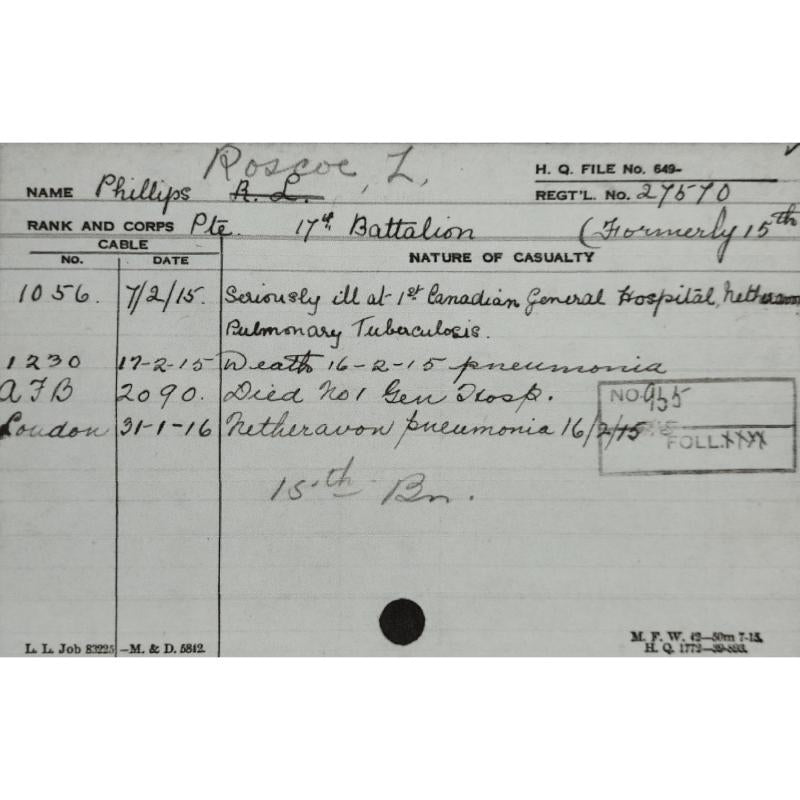 Roscoe, L.
H. Q. FILE No. 649-
NAME Phillips R. L.
REGT'L. No. 27570
RANK AND CORPS Pte. 17th Battalion (Formerly 15th
CABLE
NO. DATE NATURE OF CASUALTY
1056. 7/2/15. Seriously ill at 1st Canadian General Hospital, Netheravon
Pulmonary Tuberculosis.
1230 17-2-15 Death 16-2-15 pneumonia
AFB 2090. Died No 1 Gen Hosp.
NO. 955
London 31-1-16 Netheravon pneumonia 16/2/15
FOLL. XXXX
15th Bn.
L. L. Job 83225 -M. & D. 5842.
M. F. W. 42-50m 7-15.
H. Q. 1772-39-893.